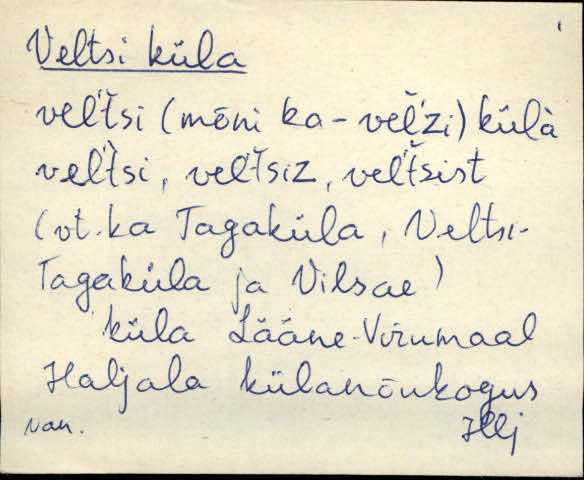 Veltsi küla
vel't̆si (mõni ka - vel'zi) külà
vel't̆si, vel't̆siz, vel't̆sist
(vt. ka Tagaküla, Veltsi-
Tagaküla ja Vilsae)
küla Lääne-Virumaal
Haljala külanõukogus
van. Hlj